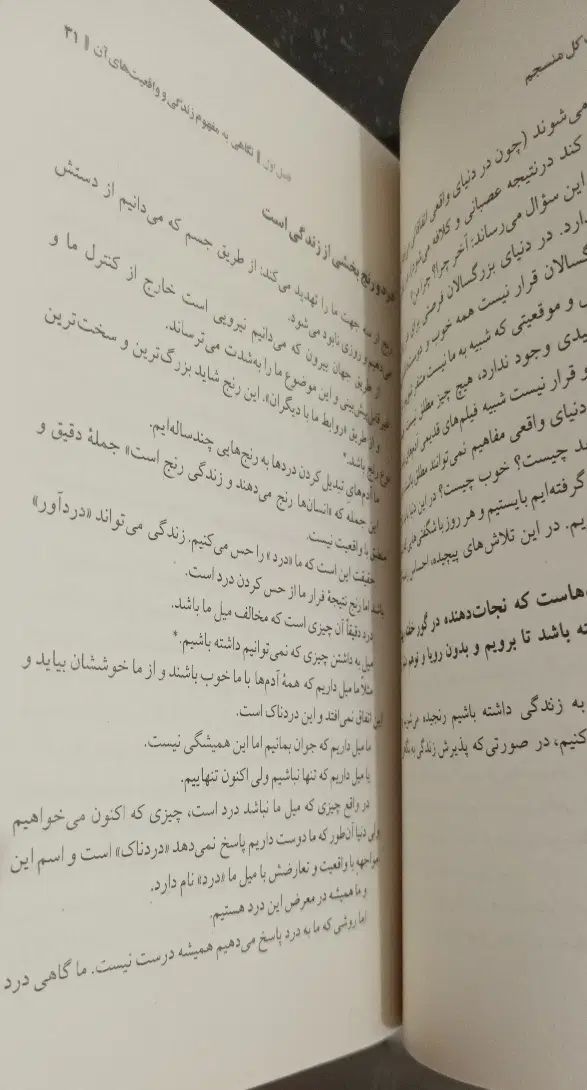 فصل اول || نگاهی به مفهوم زندگی و واقعیت‌های آن || ۳۱
درد و رنج بخشی از زندگی است
رنج از سه جهت ما را تهدید می‌کند: از طریق جسم که می‌دانیم از دستش
می‌دهیم و روزی نابود می‌شود.
از طریق جهان بیرون که می‌دانیم نیرویی است خارج از کنترل ما و
غیرقابل پیش‌بینی و این موضوع ما را به‌شدت می‌ترساند.
و از طریق «روابط ما با دیگران». این رنج شاید بزرگ‌ترین و سخت‌ترین
نوع رنج باشد.*
ما آدم‌های تبدیل کردن دردها به رنج‌هایی چندساله‌ایم.
این جمله که «انسان‌ها رنج می‌دهند و زندگی رنج است» جملهٔ دقیق و
منطبق با واقعیت نیست.
حقیقت این است که ما «درد» را حس می‌کنیم. زندگی می‌تواند «دردآور»
باشد اما رنج نتیجهٔ فرار ما از حس کردن درد است.
درد دقیقاً آن چیزی است که مخالف میل ما باشد.
میل به داشتن چیزی که نمی‌توانیم داشته باشیم.*
مثلاً ما میل داریم که همهٔ آدم‌ها با ما خوب باشند و از ما خوششان بیاید و
این اتفاق نمی‌افتد و این دردناک است.
ما میل داریم که جوان بمانیم اما این همیشگی نیست.
یا میل داریم که تنها نباشیم ولی اکنون تنهاییم.
در واقع چیزی که میل ما نباشد درد است، چیزی که اکنون می‌خواهیم
ولی دنیا آن‌طور که ما دوست داریم پاسخ نمی‌دهد «دردناک» است و اسم این
مواجهه با واقعیت و تعارضش با میل ما «درد» نام دارد.
و ما همیشه در معرض این درد هستیم.
اما روشی که ما به درد پاسخ می‌دهیم همیشه درست نیست. ما گاهی درد
کل منسجم
می‌شوند (چون در دنیای واقعی
کند درنتیجه عصبانی و کلافه می‌شود
این سؤال می‌رساند: آخر چرا؟ چرا من؟
دارد. در دنیای بزرگسالان فرصتی برای
گسالان قرار نیست همه خوب و
و موقعیتی که شبیه به ما نیست
یدی وجود ندارد، هیچ چیز مطلق نیست
و قرار نیست شبیه فیلم‌های قدیمی
دنیای واقعی مفاهیم نمی‌توانند مطلق
د چیست؟ خوب چیست؟ در این دنیا
گرفته‌ایم بایستیم و هر روز با شگفتی‌هایی
یم. در این تلاش‌های پیچیده، احساس
هاست که نجات‌دهنده در گور خفته
ته باشد تا برویم و بدون رویا و توهم
به زندگی داشته باشیم رنجیده
کنیم، در صورتی‌که پذیرش زندگی